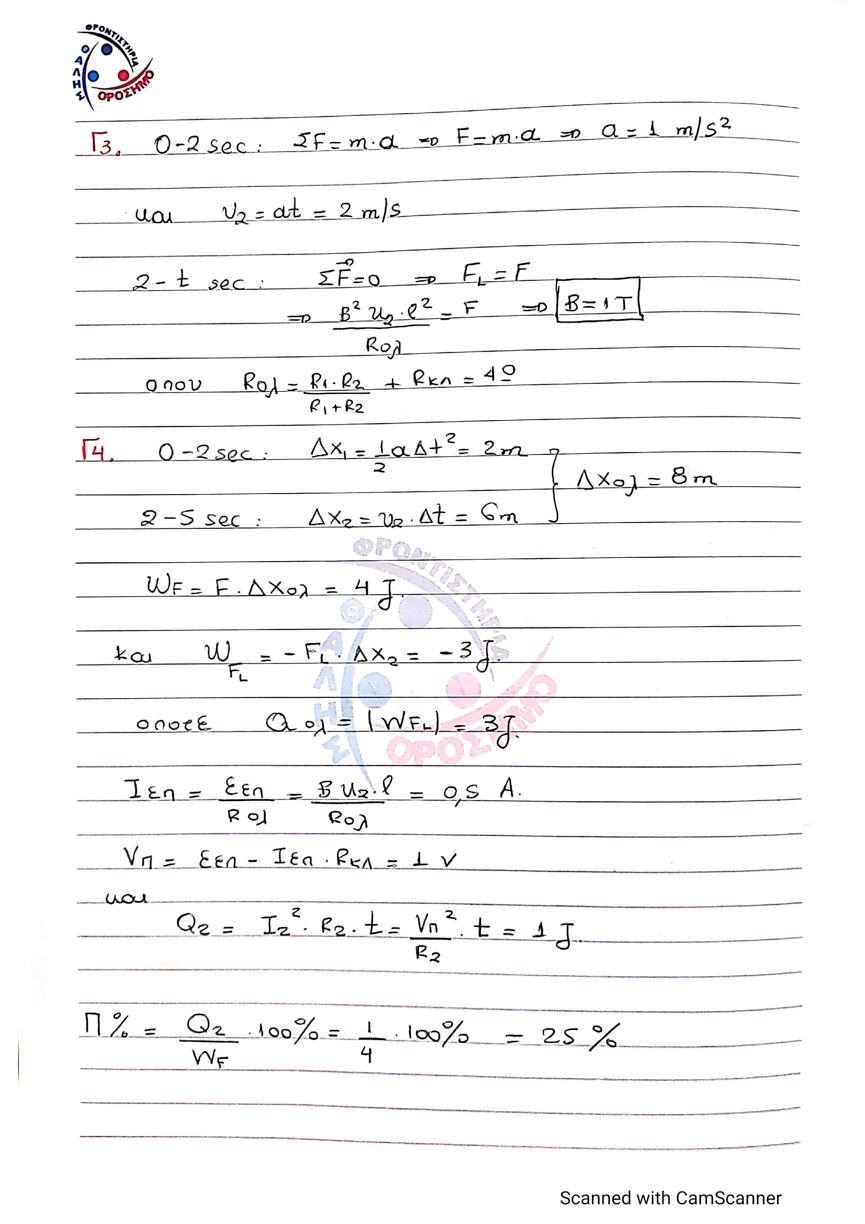 ΦΡΟΝΤΙΣΤΗΡΙΑ
ΘΑΛΗΣ
ΟΡΟΣΗΜΟ
Γ3. 0-2 sec: ΣF = m·a ⇒ F = m·a ⇒ a = 1 m/s²
και υ₂ = at = 2 m/s
2 - t sec: ΣF⃗ = 0 ⇒ F_L = F
⇒ B² υ₂·l² / Rολ = F ⇒ B = 1 T
οπου Rολ = R₁·R₂ / R₁+R₂ + Rκλ = 4Ω
Γ4. 0-2 sec: Δx₁ = 1/2 aΔt² = 2m
Δxολ = 8m
2-5 sec: Δx₂ = υ₂·Δt = 6m
ΦΡΟΝΤΙΣΤΗΡΙΑ
ΘΑΛΗΣ
ΟΡΟΣΗΜΟ
W_F = F·Δxολ = 4 J.
και W_FL = -F_L·Δx₂ = -3 J.
οποτε Qολ = |W_FL| = 3 J.
Iεπ = Εεπ / Rολ = B υ₂·l / Rολ = 0,5 A.
Vπ = Εεπ - Iεπ·Rκλ = 1 V
και
Q₂ = I₂²·R₂·t = Vπ² / R₂ ·t = 1 J.
Π% = Q₂ / W_F ·100% = 1/4 ·100% = 25%
Scanned with CamScanner